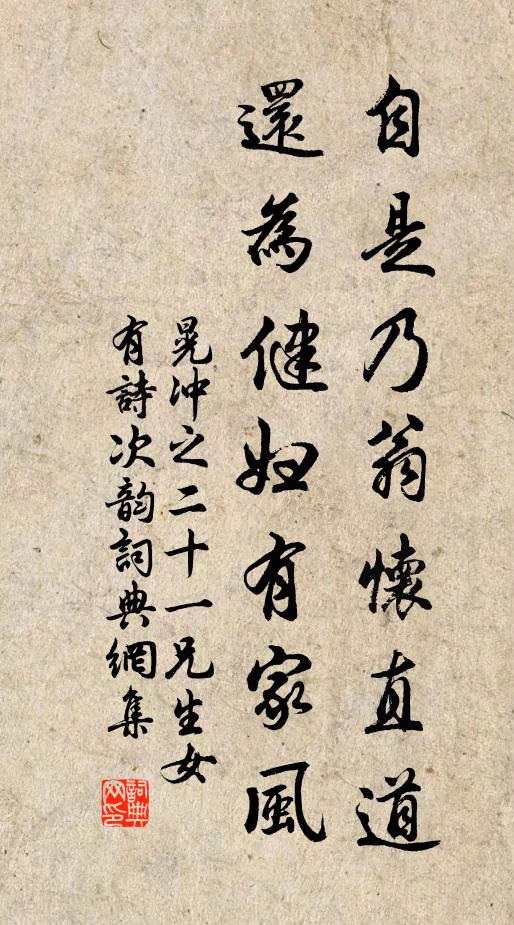 自是乃翁懷直道
還為健婦有家風
晁沖之二十一兄生女
有詩次韵詞典網集
詞典
网印